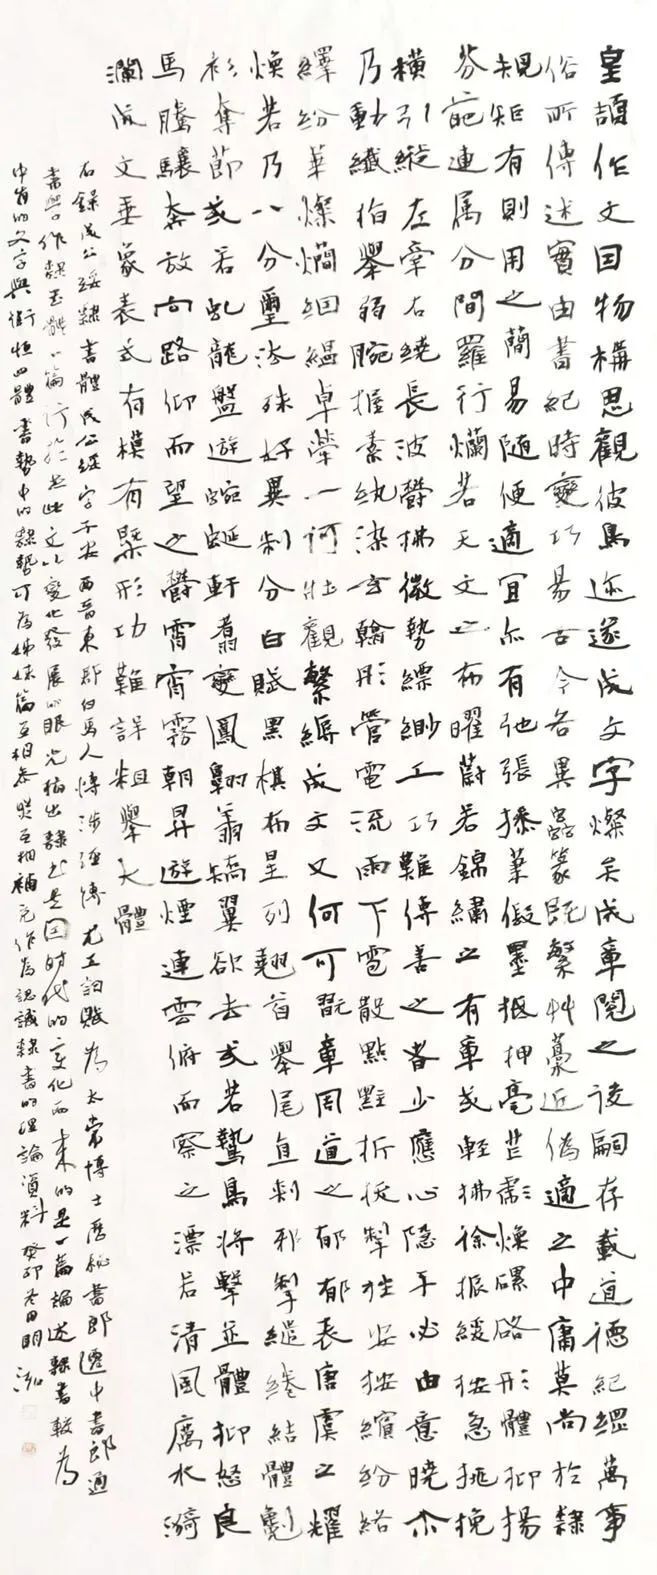 皇頡作文因物構思觀彼鳥迹遂成文字燦矣成章閱之後嗣存載道德紀綱萬事
俗所傳述實由書紀時變巧易古今各異蟲篆既繁艸藁近偽適之中庸莫尚於隸
規矩有則用之簡易随便適宜亦有弛張操筆假墨抵押毫芒彪煥磥硌形體抑揚
芬葩連属分間羅行爛若天文之布曜蔚若錦繡之有章或輕拂徐振緩按急挑挽
橫引縱左牽右繞長波鬱拂微勢縹緲工巧難傳善之者少應心隱手必由意曉尒
乃動纖指舉弱腕握素紈染玄翰彤管電流雨下雹散點黕折撥掣挫安按繽紛絡
繹紛華燦爛絪縕卓犖一何壯觀繁縟成文又何可翫章周道之郁郁表唐虞之耀
煥若乃八分璽法殊好異制分白賦黑棋布星列翹首舉尾直刺邪掣繾綣結體劖
衫奪節或若虬龍盤遊蜿蜒軒翥鸞鳳翱翔矯翼欲去或若鷙鳥將擊並體抑怒良
馬騰驤奔放向路仰而望之鬱霄霧朝昇遊煙連雲俯而察之漂若清風厲水漪
瀾成文垂象表式有模有楷形功難詳粗舉大體
右錄成公綏隸書體成公綏字子安西晉東郡白馬人博涉經傳尤工詞賦為太常博士歷秘書郎遷中書郎通
書學作隸書體一篇行於世此文以變化發展的眼光指出隸書是因時代的变化而来的是一篇論述隸書較為
中肯的文字與衛恒四體書勢中的隸勢可為姊妹篇互相参照互相補充作為認識隸書的理論資料癸卯明